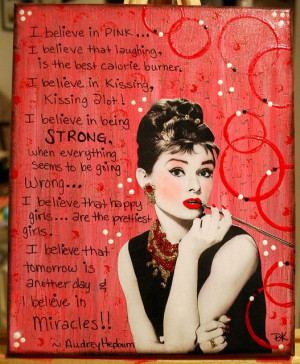 I believe in PINK...
I believe that laughing,
is the best calorie burner.
I believe in Kissing,
Kissing alot!
I believe in being
STRONG.
when everything
seems to be going
Wrong...
I believe that happy
girls... are the prettiest
girls.
I believe that
tomorrow is
another day &
I believe in
Miracles!!
~ Audrey Hepburn